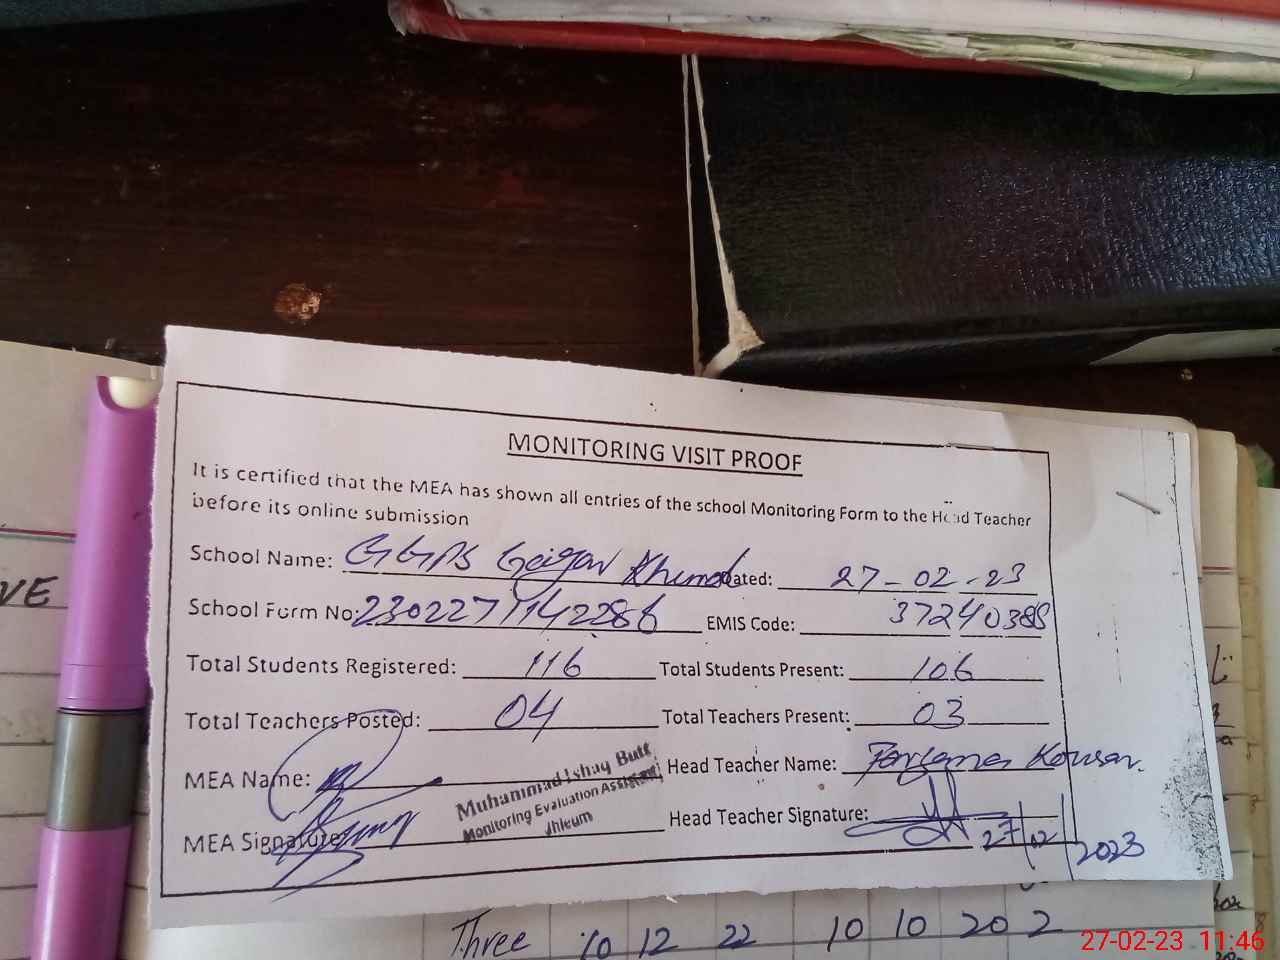 MONITORING VISIT PROOF
It is certified that the MEA has shown all entries of the school Monitoring Form to the Head Teacher
before its online submission
School Name: GGPS Gaigar Khurd Dated: 27-02-23
School Form No: 230227114228 EMIS Code: 37240388
Total Students Registered: 116 Total Students Present: 106
Total Teachers Posted: 04 Total Teachers Present: 03
MEA Name: Head Teacher Name: Kousar.
Muhammad Ishaq Butt
Monitoring Evaluation Assistant
Jhleum
MEA Signature: Head Teacher Signature:
27/02/2023
VE
Three 10 12 22 10 10 20 2
27-02-23 11:46